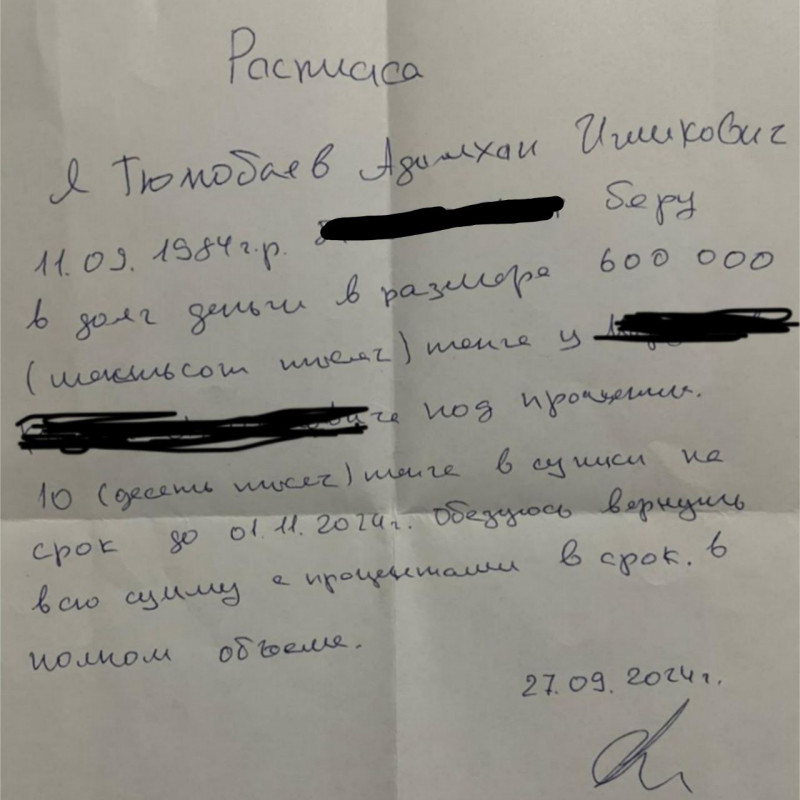 Расписаса
Я Тюлюбаев Адилхан Игликович
11.09.1984г.р. беру
в долг деньги в размере 600 000
(шестьсот тысяч) тенге у
под проценты.
10 (десять тысяч) тенге в сутки на
срок до 01.11.2024г. Обезуюсь вернуть
всю сумму с процентами в срок. в
полном объеме.
27.09.2024г.